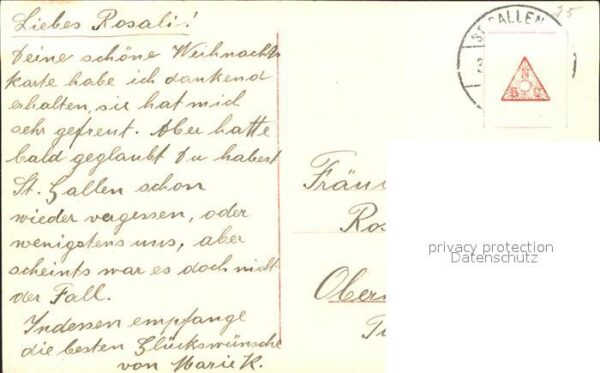 Liebes Rosali!
Deine schöne Weihnachts
karte habe ich dankend
erhalten, sie hat mich
sehr gefreut. Aber hatte
bald geglaubt Du habest
St. Gallen schon
wieder vergessen, oder
wenigstens uns, aber
scheints war es doch nicht
der Fall.
Indessen empfange
die besten Glückswünsche
von Marie K.
ST. GALLEN
25
N
B C
Fräu
Ros
Ober
privacy protection
Datenschutz